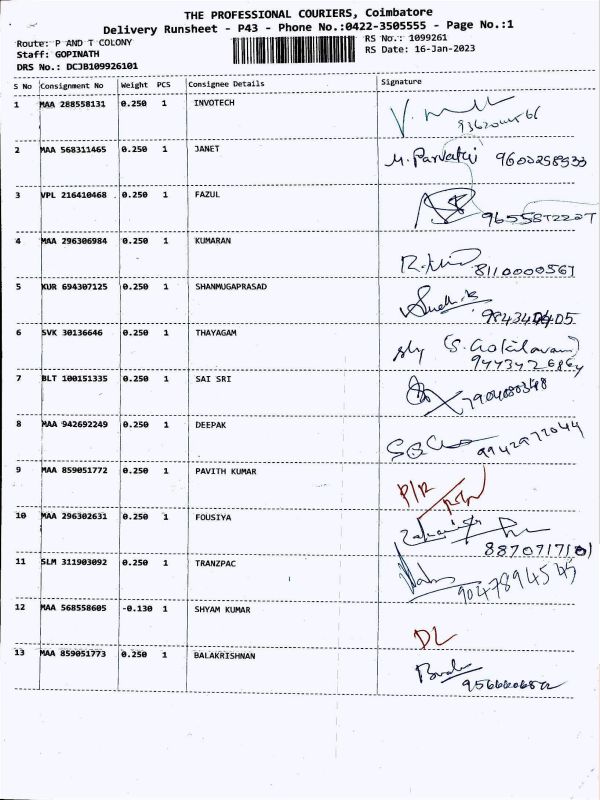 THE PROFESSIONAL COURIERS, Coimbatore
Delivery Runsheet - P43 - Phone No.:0422-3505555 - Page No.:1
Route: P AND T COLONY
RS No.: 1099261
Staff: GOPINATH
RS Date: 16-Jan-2023
DRS No.: DCJB109926101
S No Consignment No Weight PCS Consignee Details Signature
1 MAA 288558131 0.250 1 INVOTECH
2 MAA 568311465 0.250 1 JANET
M. Parvathi
3 VPL 216410468 0.250 1 FAZUL
4 MAA 296306984 0.250 1 KUMARAN
8110000567
5 KUR 694307125 0.250 1 SHANMUGAPRASAD
6 SVK 30136646 0.250 1 THAYAGAM
7 BLT 100151335 0.250 1 SAI SRI
8 MAA 942692249 0.250 1 DEEPAK
9942972044
9 MAA 859051772 0.250 1 PAVITH KUMAR
P/R
10 MAA 296302631 0.250 1 FOUSIYA
8870717101
11 SLM 311903092 0.250 1 TRANZPAC
12 MAA 568558605 -0.130 1 SHYAM KUMAR
DL
13 MAA 859051773 0.250 1 BALAKRISHNAN